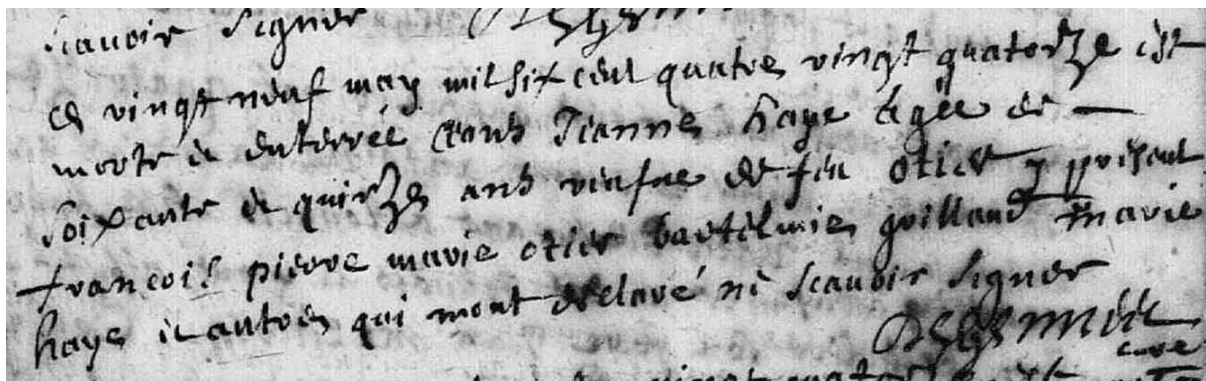 scavoir signer
ce vingt neuf may mil six cent quatre vingt quatorze est
morte et enterrée ceans Jeanne haye âgée de —
soixante et quinze ans veufue de feu otier y présent
francois pierre marie otier bartelmie guilland marie
haye et autres qui mont déclaré ne scavoir signer
curé
vingt quatorze est